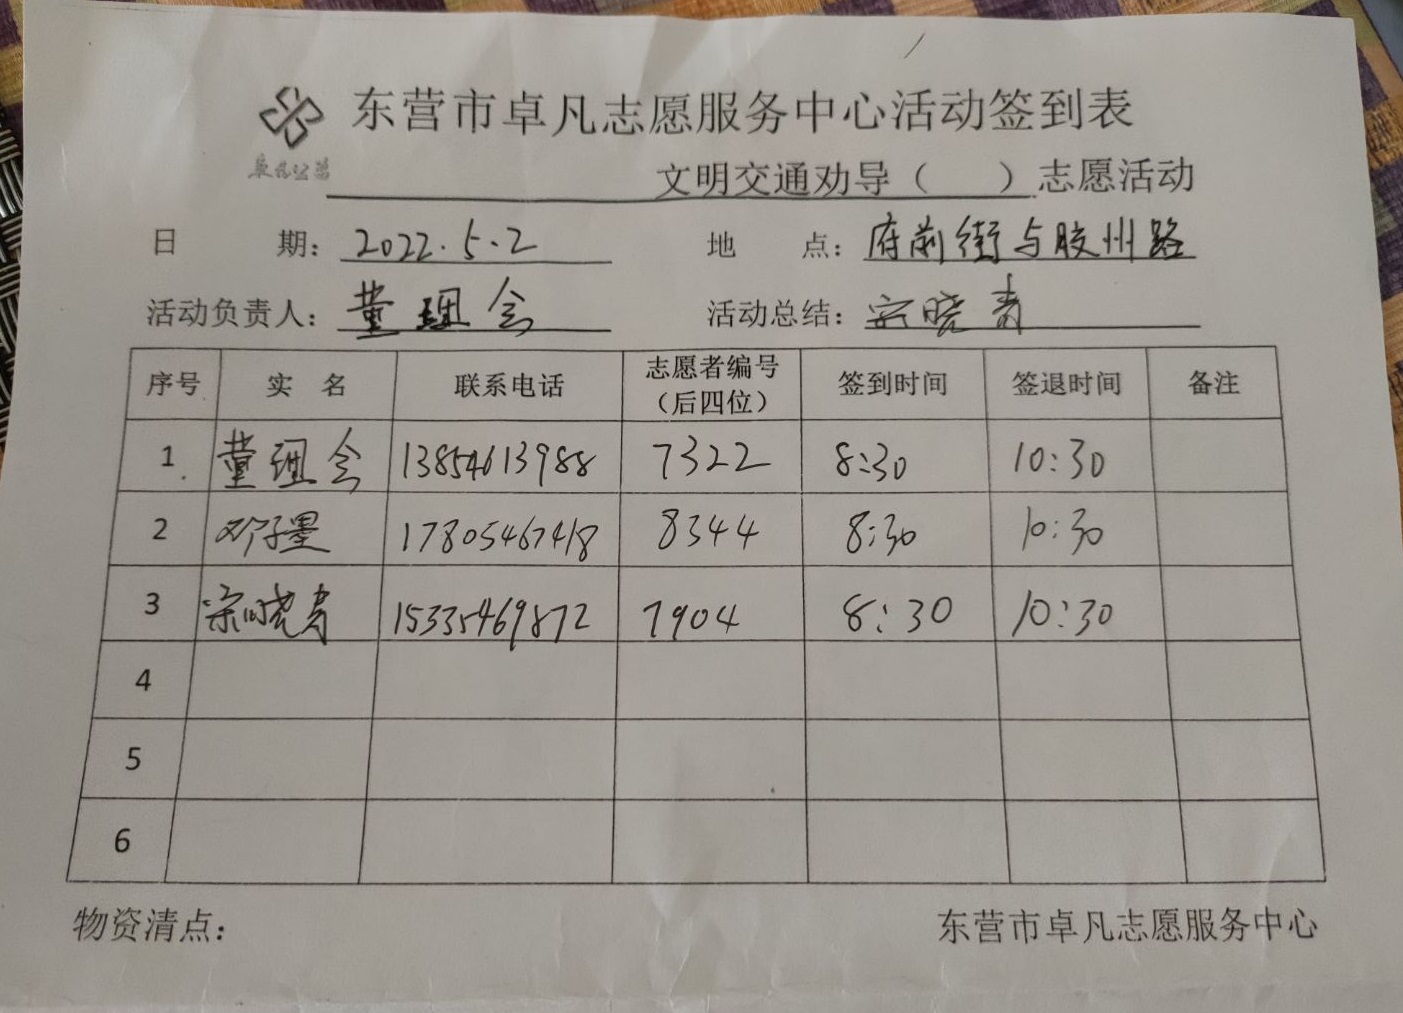 东营市卓凡志愿服务中心活动签到表
卓凡公益
文明交通劝导（ ）志愿活动
日 期：2022.5.2 地 点：府前街与胶州路
活动负责人：董理会 活动总结：宗晓青
序号 实 名 联系电话 志愿者编号（后四位） 签到时间 签退时间 备注
1 董理会 13854613988 7322 8:30 10:30
2 邓子墨 17805467418 8344 8:30 10:30
3 宗晓青 15335469872 7904 8:30 10:30
4
5
6
物资清点： 东营市卓凡志愿服务中心